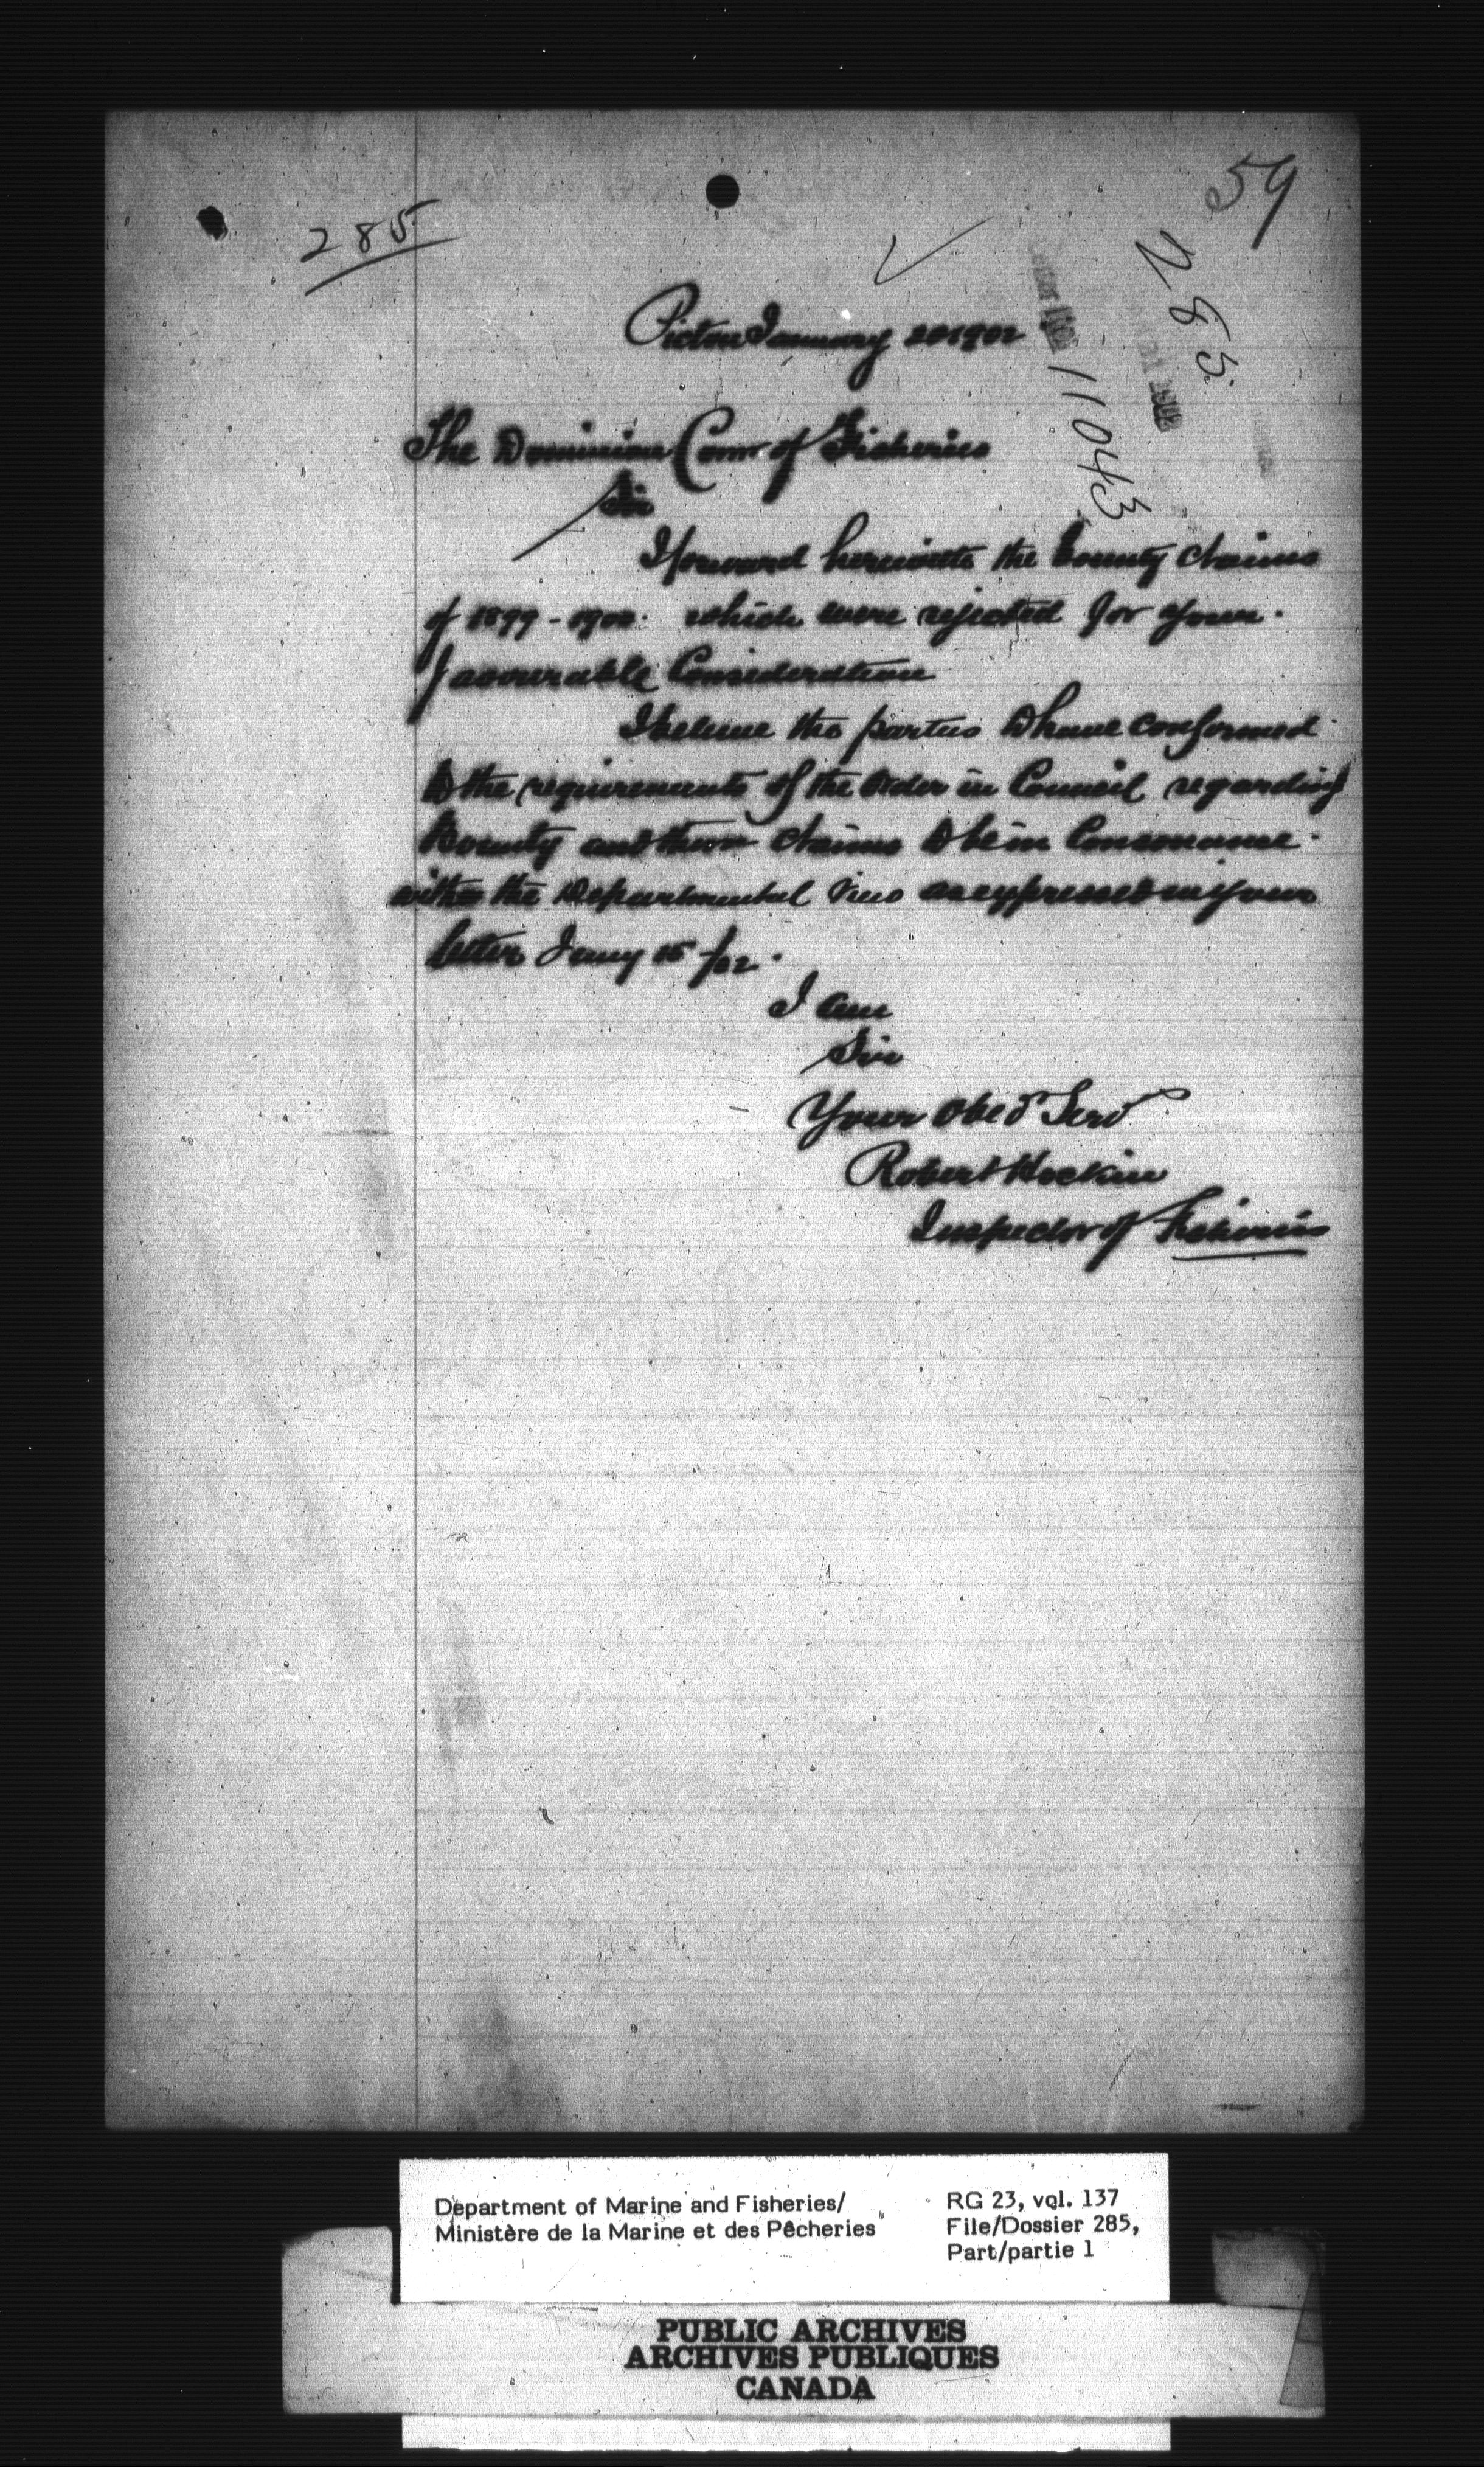 59
285
285
11043
Pictou January 20 1902
The Dominion Comr of Fisheries
Sir
I forward herewith the bounty claims
of 1899-1900. which were rejected for your
favourable Consideration
I believe the parties to have conformed
to the requirements of the Order in Council regarding
Bounty and their claims to be in Consonance
with the Departmental view as expressed in your
letter Jany 15/02.
I am
Sir
Your Obed Serv
Robert Hockin
Inspector of Fisheries
Department of Marine and Fisheries/
Ministère de la Marine et des Pêcheries
RG 23, vol. 137
File/Dossier 285,
Part/partie 1
PUBLIC ARCHIVES
ARCHIVES PUBLIQUES
CANADA